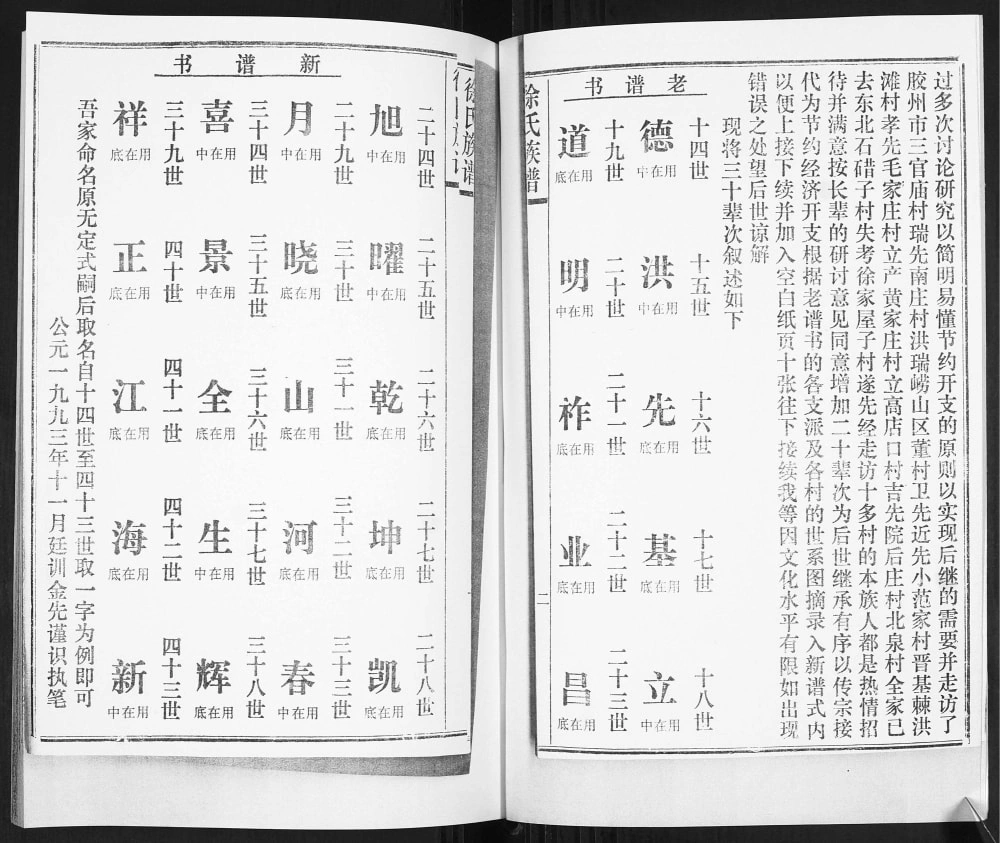 过多次讨论研究以简明易懂节约开支的原则以实现后继的需要并走访了
胶州市三官庙村瑞先南庄村洪瑞崂山区董村卫先近先小范家村晋基棘洪
滩村孝先毛家庄村立产黄家庄村立高店口村吉先院后庄村北泉村全家已
去东北石碏子村失考徐家屋子村遂先经走访十多村的本族人都是热情招
待并满意按长辈的研讨意见同意增加二十辈次为后世继承有序以传宗接
代为节约经济开支根据老谱书的各支派及各村的世系图摘录入新谱式内
以便上接下续并加入空白纸页十张往下接续我等因文化水平有限如出现
错误之处望后世谅解
现将三十辈次叙述如下
老谱书
十四世
德
用在中
十五世
洪
用在中
十六世
先
用在底
十七世
基
用在底
十八世
立
用在中
十九世
道
用在底
二十世
明
用在中
二十一世
祚
用在底
二十二世
业
用在底
二十三世
昌
用在底
徐氏族谱
二
徐氏族谱
新谱书
二十四世
旭
用在底
二十五世
曜
用在底
二十六世
乾
用在底
二十七世
坤
用在底
二十八世
凯
用在底
二十九世
月
用在中
三十世
晓
用在底
三十一世
山
用在底
三十二世
河
用在底
三十三世
春
用在中
三十四世
喜
用在中
三十五世
景
用在中
三十六世
全
用在底
三十七世
生
用在中
三十八世
辉
用在底
三十九世
祥
用在底
四十世
正
用在底
四十一世
江
用在底
四十二世
海
用在底
四十三世
新
用在中
吾家命名原无定式嗣后取名自十四世至四十三世取一字为例即可
公元一九九三年十一月廷训金先谨识执笔